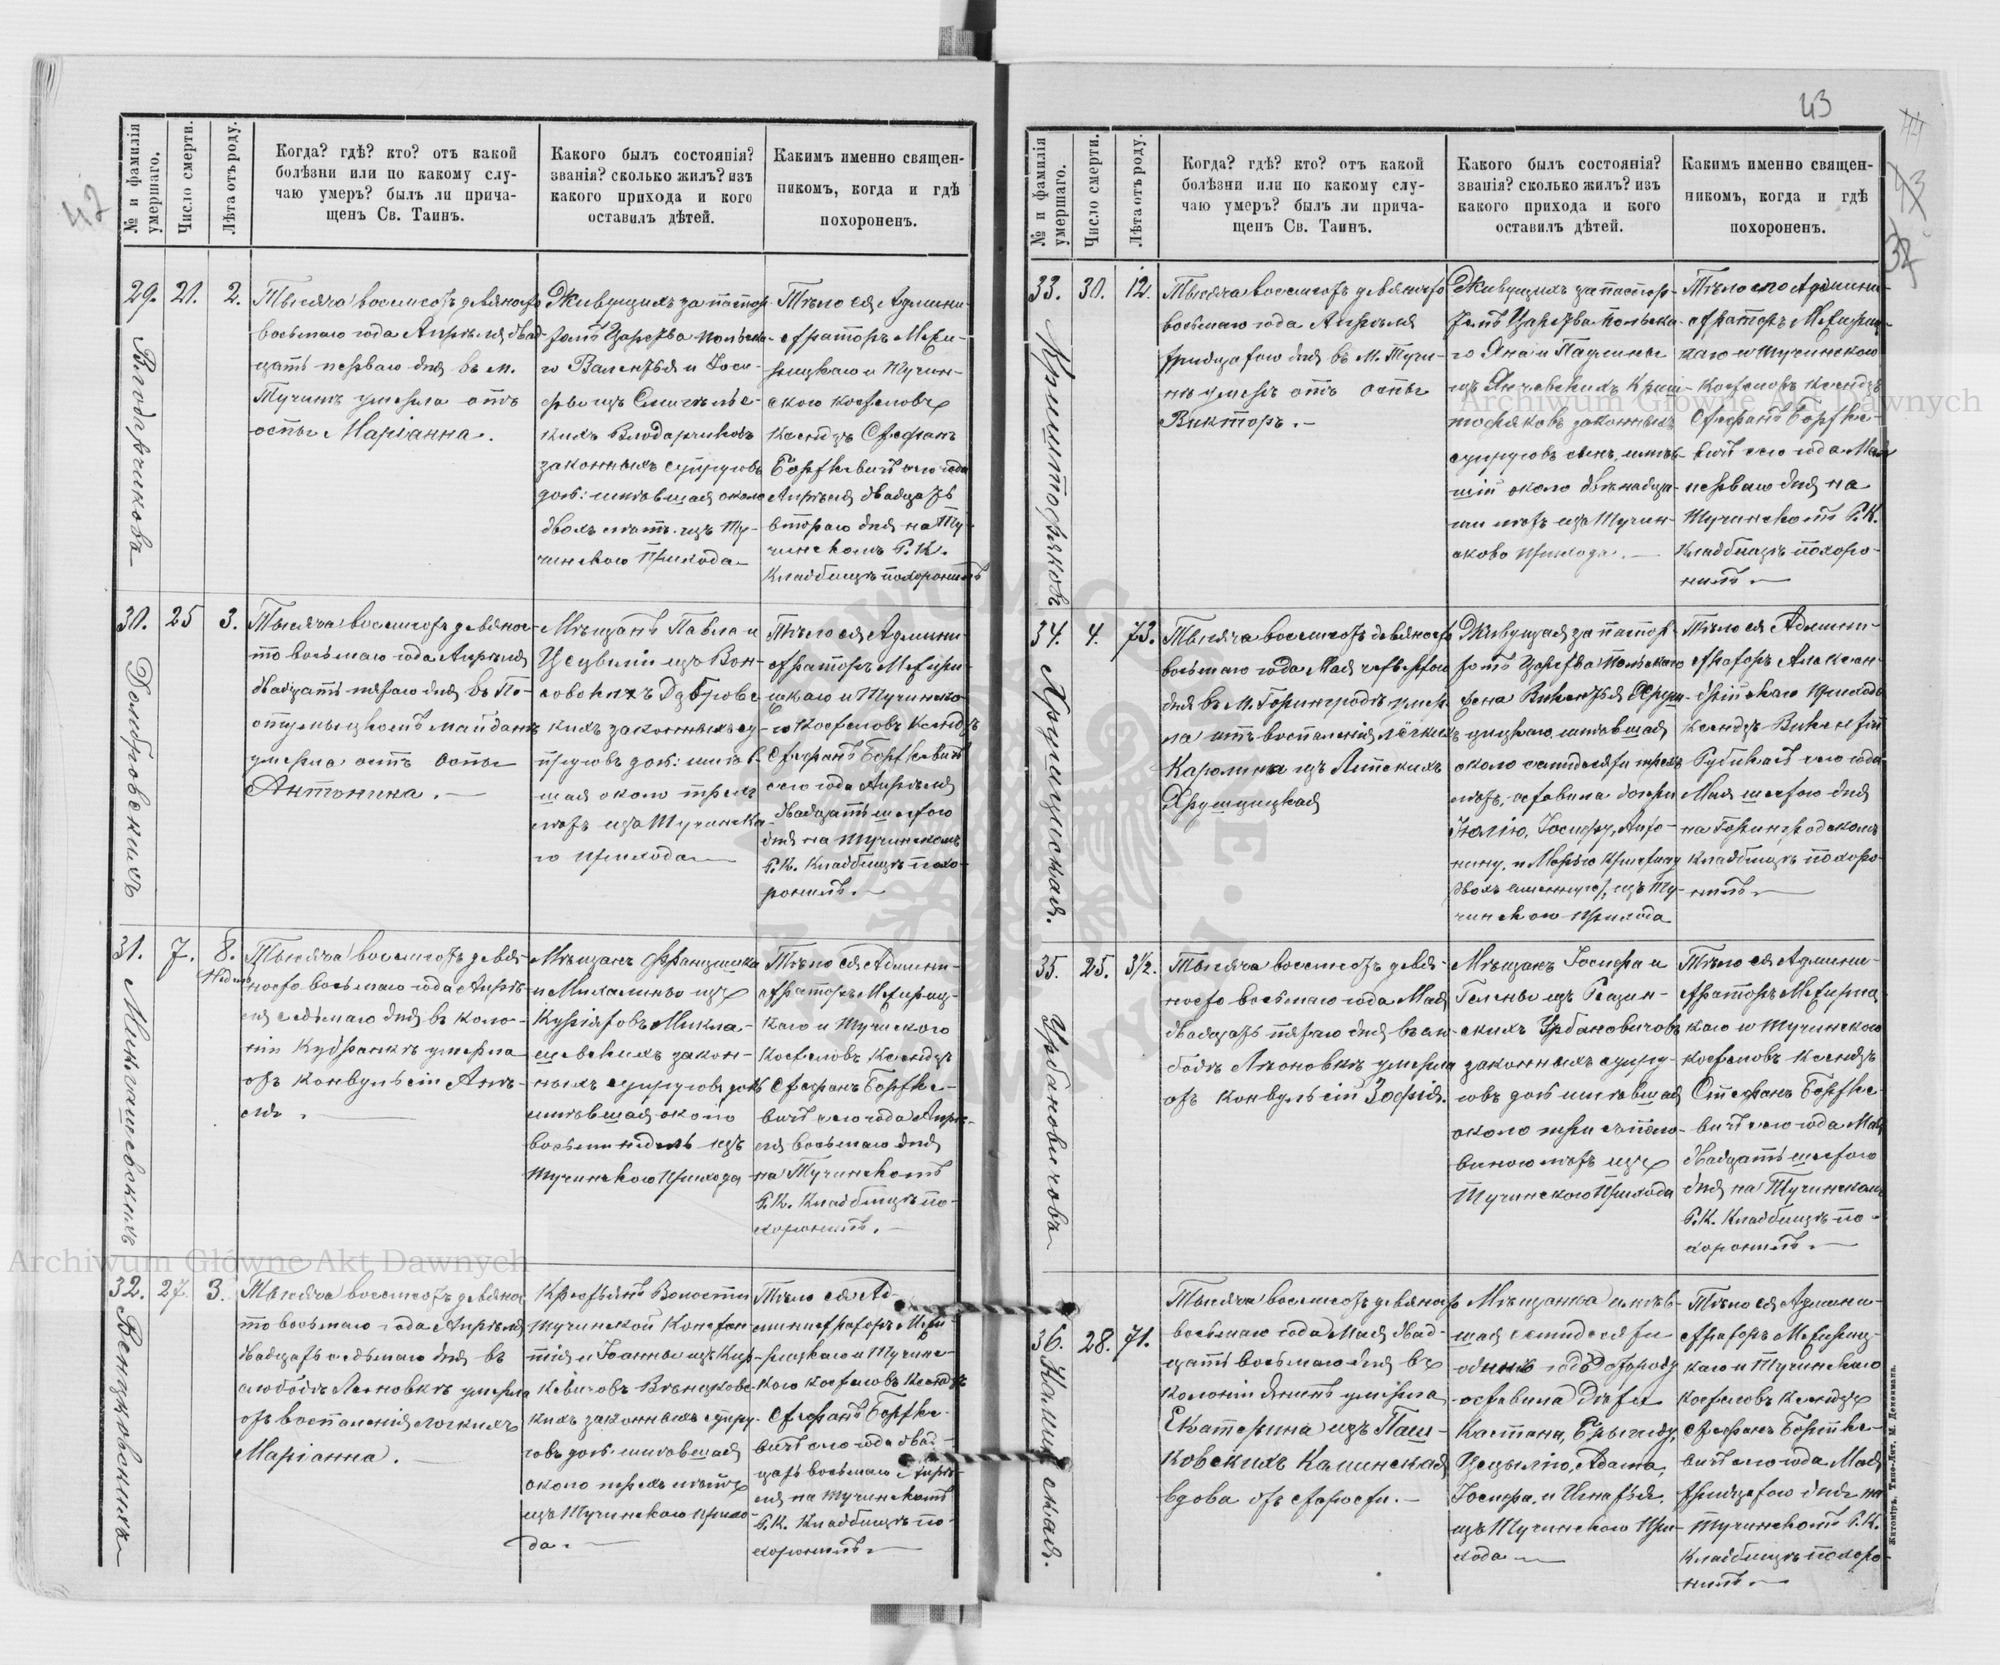 43
44
43
32
42
№ и фамилія умершаго.
Число смерти.
Лѣта отъ роду.
Когда? гдѣ? кто? отъ какой
болѣзни или по какому слу-
чаю умеръ? былъ ли прича-
щенъ Св. Таинъ.
Какого былъ состоянія?
званія? сколько жилъ? изъ
какого прихода и кого
оставилъ дѣтей.
Какимъ именно священ-
никомъ, когда и гдѣ
похороненъ.
29. 21. 2.
Влодарчиковъ
Тысяча восемсотъ девяносто
восьмаго года Апрѣля двад-
цать перваго дня в м.
Тучинѣ умерла отъ
оспы Маріанна.
Живущихъ за паспор-
томъ Царства Польска-
го Валентія и Іози-
фы изъ
кихъ Влодарчиковъ
законныхъ супруговъ
дочь: имѣвшая около
двохъ лѣтъ. изъ Ту-
чинскаго Прихода
Тѣло ея Админи-
страторъ Межи-
рицкаго и Тучин-
ского костеловъ
Ксендзъ Стефанъ
Борткевичъ сего года
Апрѣля двадцать
втораго дня на Ту-
чинскомъ Р. К.
Кладбищѣ похоронилъ
30. 25 3.
Домбровскихъ
Тысяча восемсотъ девянос-
то восьмаго года Апрѣля
двадцать пятаго дня в
Майданѣ
умерла отъ оспы
Антонина.
Мѣщанъ Павла и
Цецыліи изъ Вон-
совскихъ Домбровс-
кихъ законныхъ су-
пруговъ доч: имѣв-
шая около трехъ
лѣтъ изъ Тучинска-
го прихода
Тѣло ея Админи-
страторъ Межири-
цкаго и Тучинско-
го Костеловъ Ксендзъ
Стефанъ Борткевичъ
сего года Апрѣля
двадцать шестого
дня на Тучинскомъ
Р. К. Кладбищѣ похо-
ронилъ.
31. 7. 8. недѣль
Миклашевскихъ
Тысяча восемсотъ девя-
носто восьмаго года Апрѣ-
ля седьмаго дня в коло-
ніи Кудранкѣ умерла
отъ конвульсіи Анѣ-
ля.
Мѣщанъ Францишка
и Михалины изъ
Микла-
шевскихъ закон-
ныхъ супруговъ дочь
имѣвшая около
восьми недѣль изъ
Тучинскаго Прихода
Тѣло ея Админи-
страторъ Межириц-
каго и Тучинского
Костеловъ Ксендзъ
Стефанъ Бортке-
вичъ сего года Апрѣ-
ля восьмаго дня
на Тучинскомъ
Р. К. Кладбищѣ по-
хоронилъ.
32. 27. 3.
Тысяча восемсотъ девянос-
то восьмаго года Апрѣля
двадцать седьмаго дня въ
слободѣ Леоновкѣ умерла
отъ воспаленія легкихъ
Маріанна.
Крестьянъ Волости
Тучинской Констан-
тія и Іоанны изъ
кихъ законныхъ супру-
говъ доч: имѣвшая
около трехъ лѣтъ
изъ Тучинскаго прихо-
да.
Тѣло ея Ад-
министраторъ Межи-
рицкаго и Тучинс-
кого костеловъ Ксендзъ
Стефанъ Бортке-
вичъ сего года двад-
цать восьмаго Апрѣ-
ля на Тучинскомъ
Р. К. Кладбищѣ по-
хоронилъ
№ и фамилія умершаго.
Число смерти.
Лѣта отъ роду.
Когда? гдѣ? кто? отъ какой
болѣзни или по какому слу-
чаю умеръ? былъ ли прича-
щенъ Св. Таинъ.
Какого былъ состоянія?
званія? сколько жилъ? изъ
какого прихода и кого
оставилъ дѣтей.
Какимъ именно священ-
никомъ, когда и гдѣ
похороненъ.
33. 30. 12.
Криштофяковъ
Тысяча восемсотъ девяносто
восьмаго года Апрѣля
тридцатого дня въ М. Тучи-
нѣ умеръ отъ оспы
Викторъ.
Живущихъ за паспор-
томъ Царства Польска-
го Яна и Паулины
изъ Янчевскихъ Криш-
тофяковъ законныхъ
супруговъ сынъ, имѣв-
шій около двѣнадца-
ти лѣтъ изъ Тучин-
скаво прихода.
Тѣло его Админи-
страторъ Межириц-
каго и Тучинского
Костеловъ Ксендзъ
Стефанъ Бортке-
вичъ сего года Мая
перваго дня на
Тучинскомъ Р. К.
Кладбищѣ похоро-
нилъ
34. 4. 73.
Хрущицкая.
Тысяча восемсотъ девяносто
восьмаго года Мая четвертого
дня въ М. Горинградѣ умер-
ла отъ воспаленія лёгкихъ
Каролина изъ Липскихъ
Хрущицкая
Живущая за паспор-
томъ Царства Польскаго
жена Викентія Хрущи-
цицкаго, имѣвшая
около семидесяти трехъ
лѣтъ, оставила дочери
Юлію, Іосифу, Анто-
нину, и Марью
двохъ изъ Ту-
чинскаго прихода
Тѣло ея Админи-
страторъ Алексан-
дрійскаго прихода
Ксендзъ Викентій
сего года
Мая шестого дня
на Горинградскомъ
кладбищѣ похоро-
нилъ
35. 25. 3½.
Урбановичовъ
Тысяча восемсотъ девя-
носто восьмаго года Мая
двадцать пятаго дня въ сло-
бодѣ Леоновкѣ умерла
отъ конвульсіи Зофія.
Мѣщанъ Іосифа и
Гелены изъ
скихъ Урбановичовъ
законныхъ супру-
говъ доч имѣвшая
около три съ поло-
виною лѣтъ изъ
Тучинского Прихода
Тѣло ея Админи-
страторъ Межириц-
каго и Тучинского
костеловъ Ксендзъ
Стефанъ Бортке-
вичъ сего года Мая
двадцать шестого
дня на Тучинскомъ
Р. К. Кладбищѣ по-
хоронилъ
36. 28. 71.
Каминская.
Тысяча восемсотъ девяносто
восьмаго года Мая двад-
цать восьмаго дня въ
колоніи Янинѣ умерла
Екатерина изъ Паш-
ковскихъ Каминская
вдова отъ старости.
Мѣщанка имѣв-
шая семидесяти
одинъ годъ отъ роду
оставила дѣти
Каетана, Брыгиду,
Цецылію, Адама,
Іосифа, и Игнатія.
изъ Тучинскаго При-
хода
Тѣло ея Админи-
страторъ Межириц-
каго и Тучинскаго
Костеловъ Ксендзъ
Стефанъ Бортке-
вичъ сего года Мая
тридцатого дня на
Тучинскомъ Р. К.
Кладбищѣ похоро-
нилъ
Житомiръ. Типо-Лит. М. Дененмана.
Archiwum Główne Akt Dawnych
Archiwum Główne Akt Dawnych